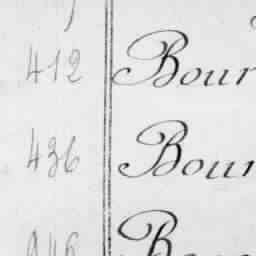 412 Bour
436 Bour